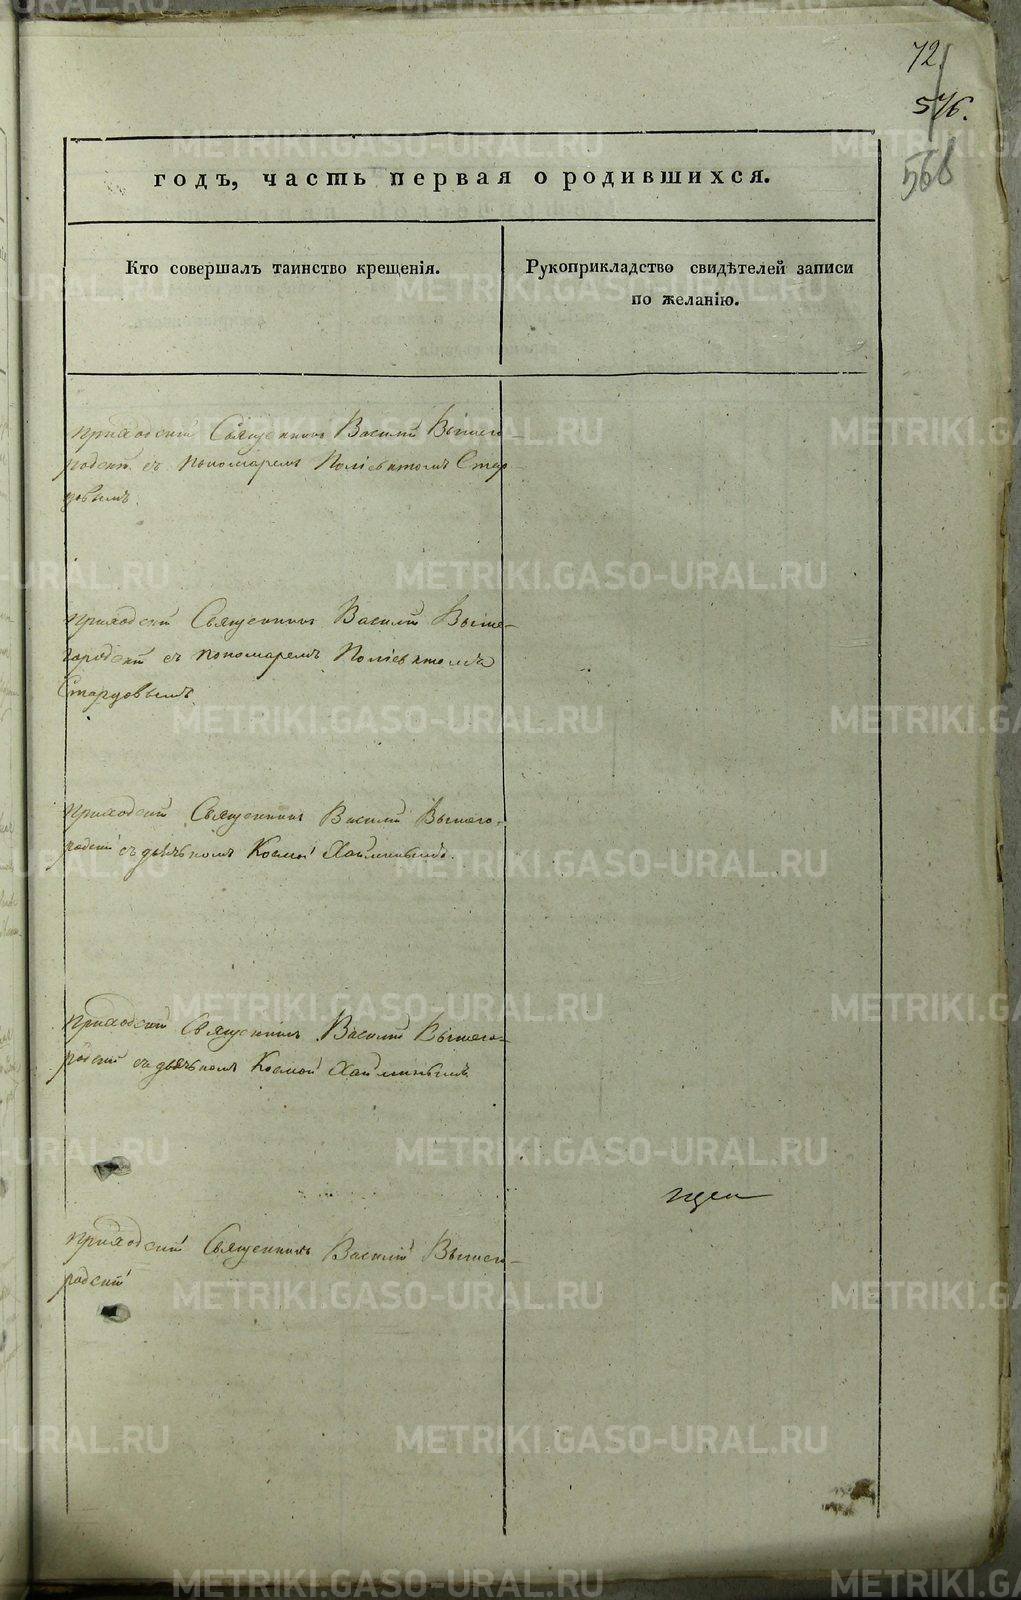 72.
576.
568
годъ, часть первая о родившихся.
Кто совершалъ таинство крещенія.
Рукоприкладство свидѣтелей записи
по желанію.
приходскій Священникъ Василій Вышего-
родскій съ пономаремъ Поліевктомъ Стар-
цовымъ.
приходскій Священникъ Василій Выше-
городскій съ пономаремъ Поліевктомъ
Старцовымъ
приходскій Священникъ Василій Вышего-
родскій съ дьячькомъ Космой
приходскій Священникъ Василій Вышего-
родскій съ дьячькомъ Космой
приходскій Священникъ Василій Вышего-
родскій
METRIKI.GASO-URAL.RU